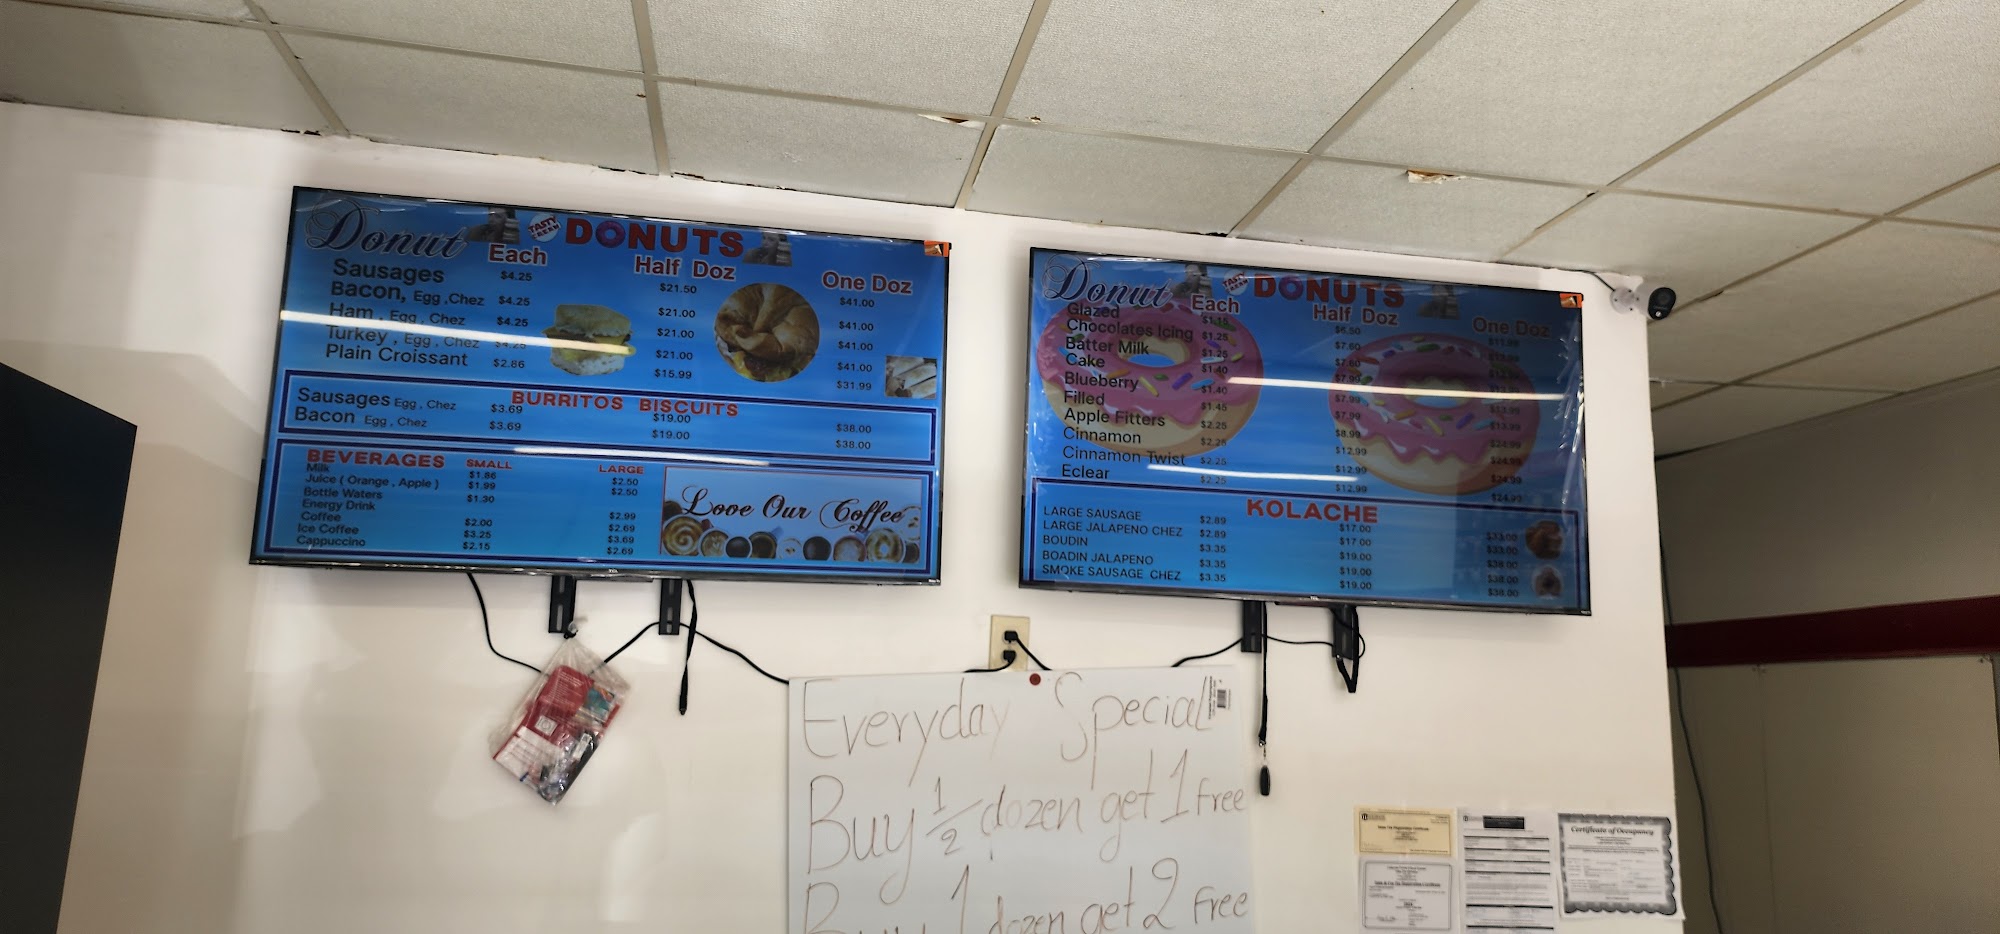 Donut
TASTY KREAM
DONUTS
Each
Half Doz
One Doz
Sausages $4.25 $21.50 $41.00
Bacon, Egg ,Chez $4.25 $21.00 $41.00
Ham , Egg , Chez $4.25 $21.00 $41.00
Turkey , Egg , Chez $4.25 $21.00 $41.00
Plain Croissant $2.86 $15.99 $31.99
BURRITOS BISCUITS
Sausages Egg , Chez $3.69 $19.00 $38.00
Bacon Egg , Chez $3.69 $19.00 $38.00
BEVERAGES SMALL LARGE
Milk $1.86 $2.50
Juice ( Orange , Apple ) $1.99 $2.50
Bottle Waters $1.30
Energy Drink $2.99
Coffee $2.00 $2.69
Ice Coffee $3.25 $3.69
Cappuccino $2.15 $2.69
Love Our Coffee
TCL
Donut
DONUTS
Each
Half Doz
One Doz
Glazed $1.15 $6.50 $11.99
Chocolates Icing $1.25 $7.60
Batter Milk $1.25 $7.60
Cake $1.40 $7.99
Blueberry $1.40 $7.99
Filled $1.45 $7.99 $13.99
Apple Fitters $2.25 $8.99 $13.99
Cinnamon $2.25 $12.99 $24.99
Cinnamon Twist $2.25 $12.99 $24.99
Eclear $2.25 $12.99 $24.99
$24.99
KOLACHE
LARGE SAUSAGE $2.89 $17.00 $33.00
LARGE JALAPENO CHEZ $2.89 $17.00 $33.00
BOUDIN $3.35 $19.00 $38.00
BOADIN JALAPENO $3.35 $19.00 $38.00
SMOKE SAUSAGE CHEZ $3.35 $19.00 $38.00
TCL
Everyday Special
Buy 1/2 dozen get 1 Free
Buy 1 dozen get 2 Free
Certificate of Occupancy